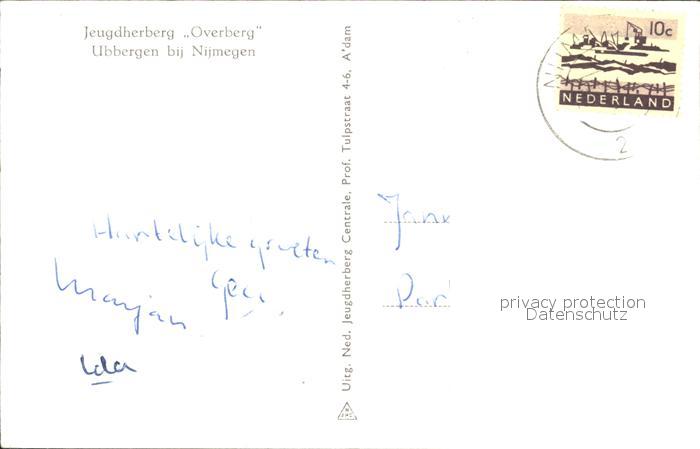 Jeugdherberg „Overberg"
Ubbergen bij Nijmegen
Hartelijke groeten
Marjan
Ida
Uitg. Ned. Jeugdherberg Centrale, Prof. Tulpstraat 4-6, A'dam
10c
NEDERLAND
2
privacy protection
Datenschutz